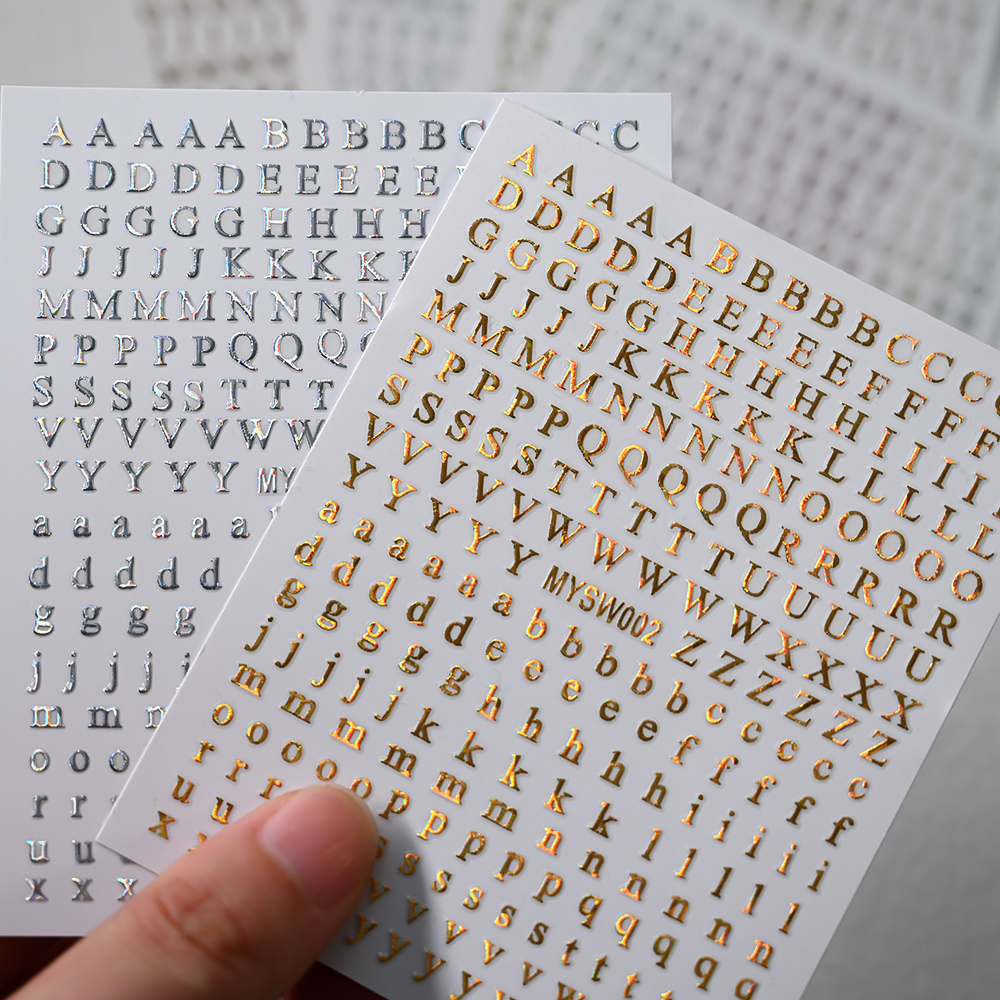 A A A A A B B B B B C C C
D D D D D E E E E E
G G G G G H H H H
J J J J J K K K K
M M M M M N N N N
P P P P P Q Q Q
S S S S S T T T
V V V V V W W
Y Y Y Y Y MY
a a a a a
d d d d d
g g g g
j j j j
m m
o o o
r r
u u
x x x
A A A A A B B B B B C C C
D D D D D E E E E E F F F F
G G G G G H H H H H I I I I
J J J J J K K K K K L L L L L
M M M M M N N N N N O O O O O
P P P P P Q Q Q Q Q R R R R R
S S S S S T T T T T U U U U U
V V V V V W W W W W X X X X X
Y Y Y Y Y MYSW002 Z Z Z Z Z
a a a a a b b b b b c c c c c
d d d d d e e e e e f f f f f
g g g g g h h h h h i i i i i
j j j j j k k k k k l l l l l
m m m m m n n n n n
o o o o o p p p p p q q q q q
r r r s s s s t t t
u u v v v v v w
x y y y y